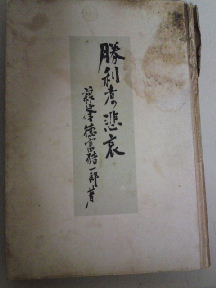 勝利者の悲哀
蘇峰徳富猪一郎著